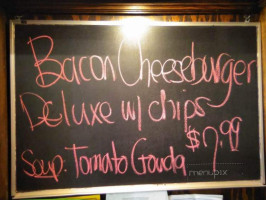 Bacon Cheeseburger
Deluxe w/ chips
$7.99
Soup: Tomato Gouda
menupix